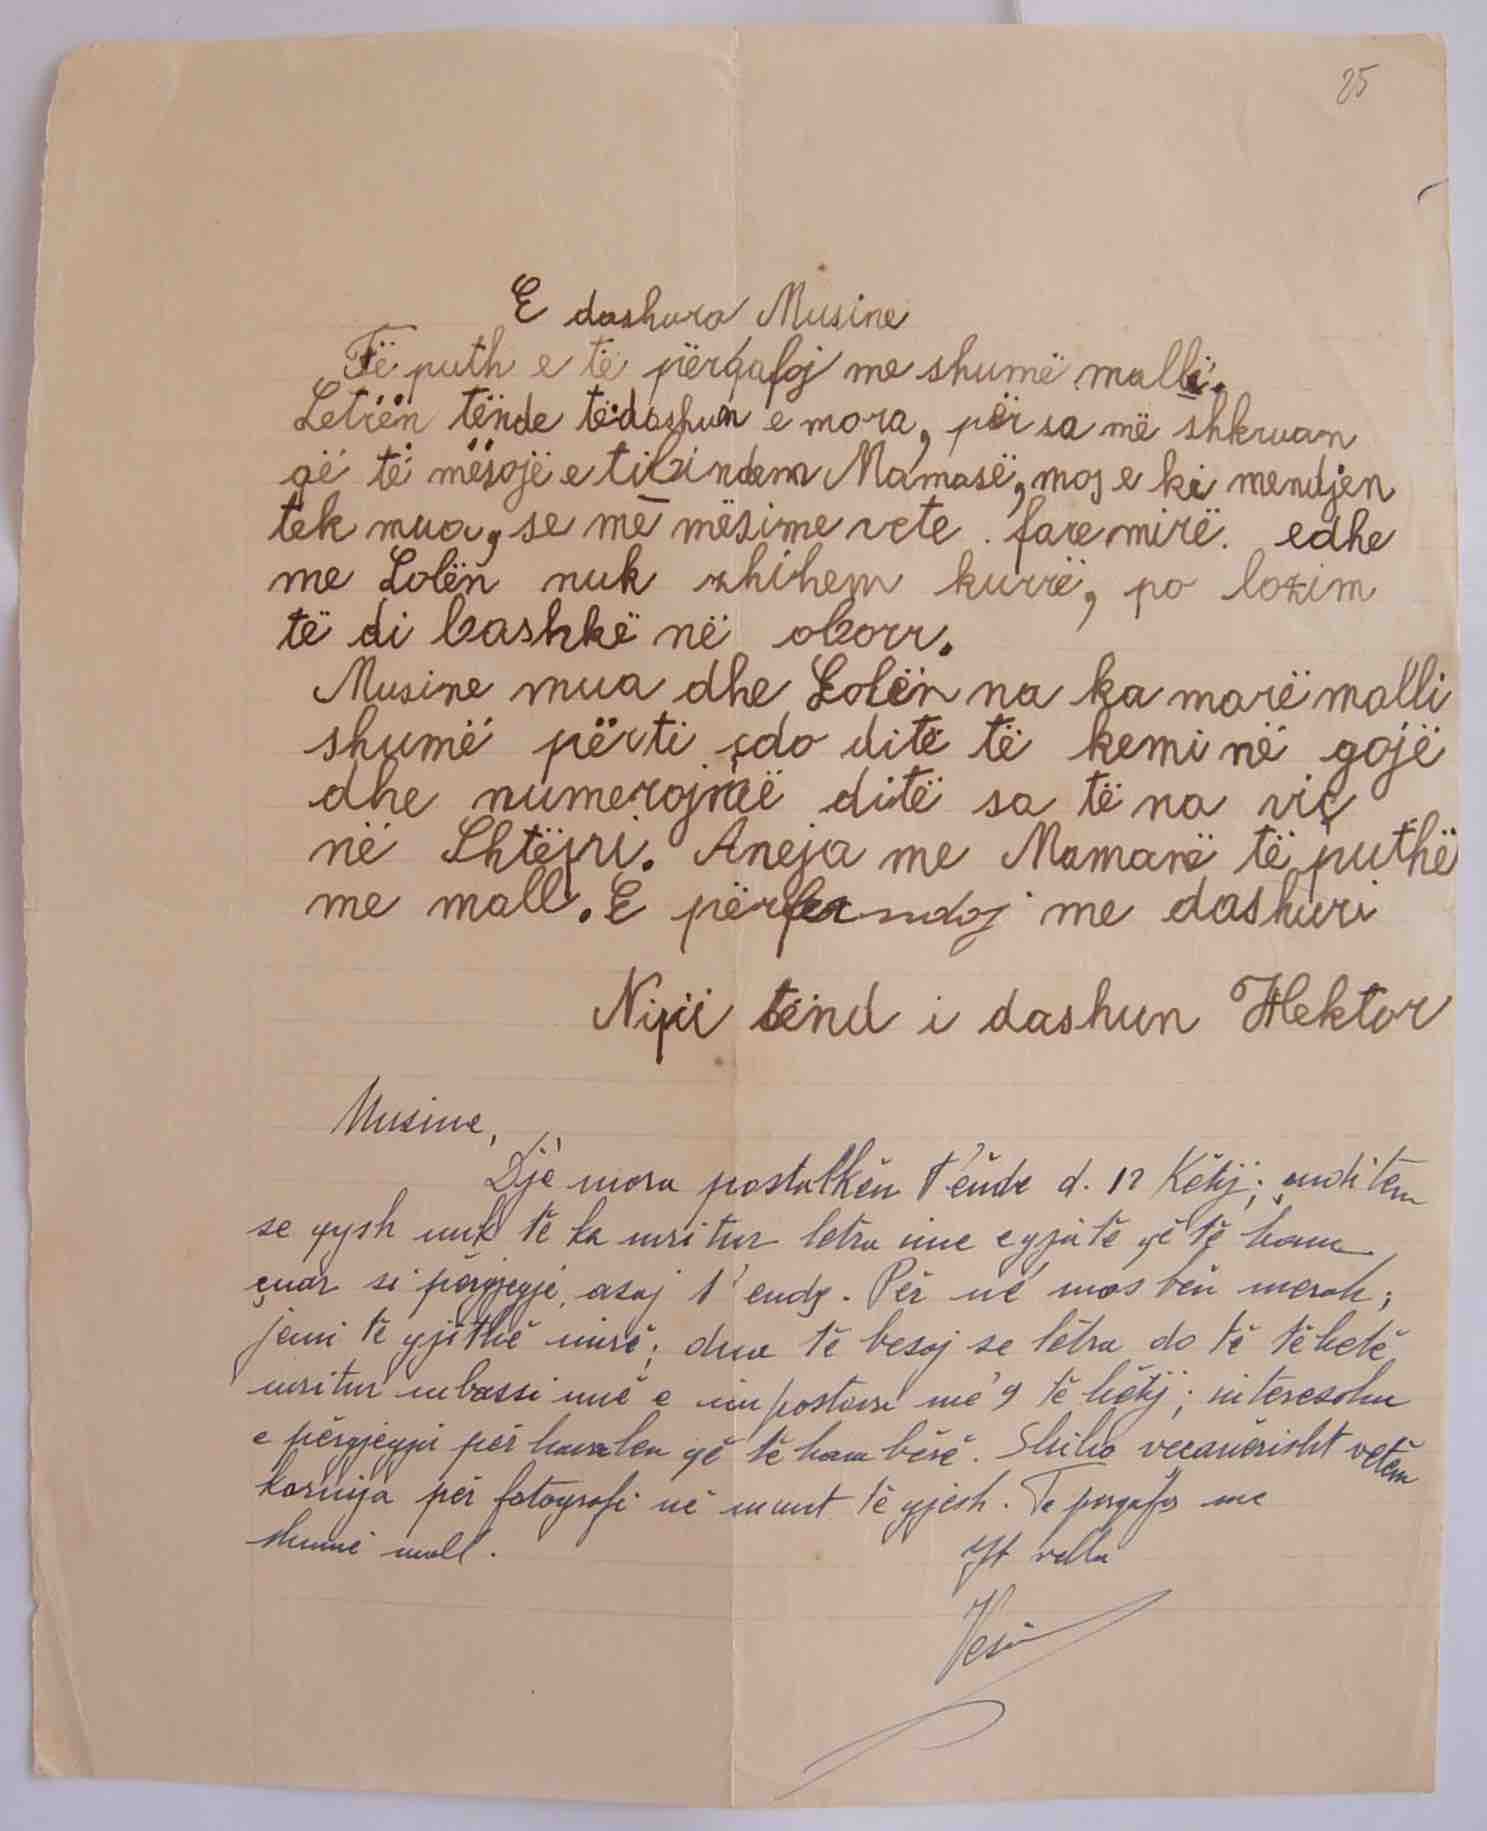 25
E dashura Musine
Të puth e të përqafoj me shumë malli.
Letrën tënde të dashun e mora, për sa më shkruan
që të mësojë e ti bindem Mamasë, mos e ki mendjen
tek mua, se më mësime vete fare mirë. edhe
me Lolën nuk zhihem kurrë, po lozim
të di bashkë në oborr.
Musine mua dhe Lolën na ka marë malli
shumë përti çdo ditë të kemi në gojë
dhe numerojmë ditë sa të na viç
në Shtëpi. Aneja me Mamanë të puthë
me mall. E përfundoj me dashuri
Nipi tënd i dashun Hektor
Musine,
Djè mora postalkën t'ënde d. 12 Këtij; çuditem
se qysh nuk të ka mritur letra ime e gjatë që të kam
çuar si përgjegje asaj t'ende. Për né mos bën merak;
jemi të gjithë mirë; dua të besoj se letra do të të ketë
mritur mbassi unë e kam postuar më 9 të këtij; interesohu
e përgjegju për që të kam bërë. Shiko veçanërisht vetëm
kornija për fotografi në munt të gjesh. Te pergafoj me
shumë mall.
Yt vella
Vesi